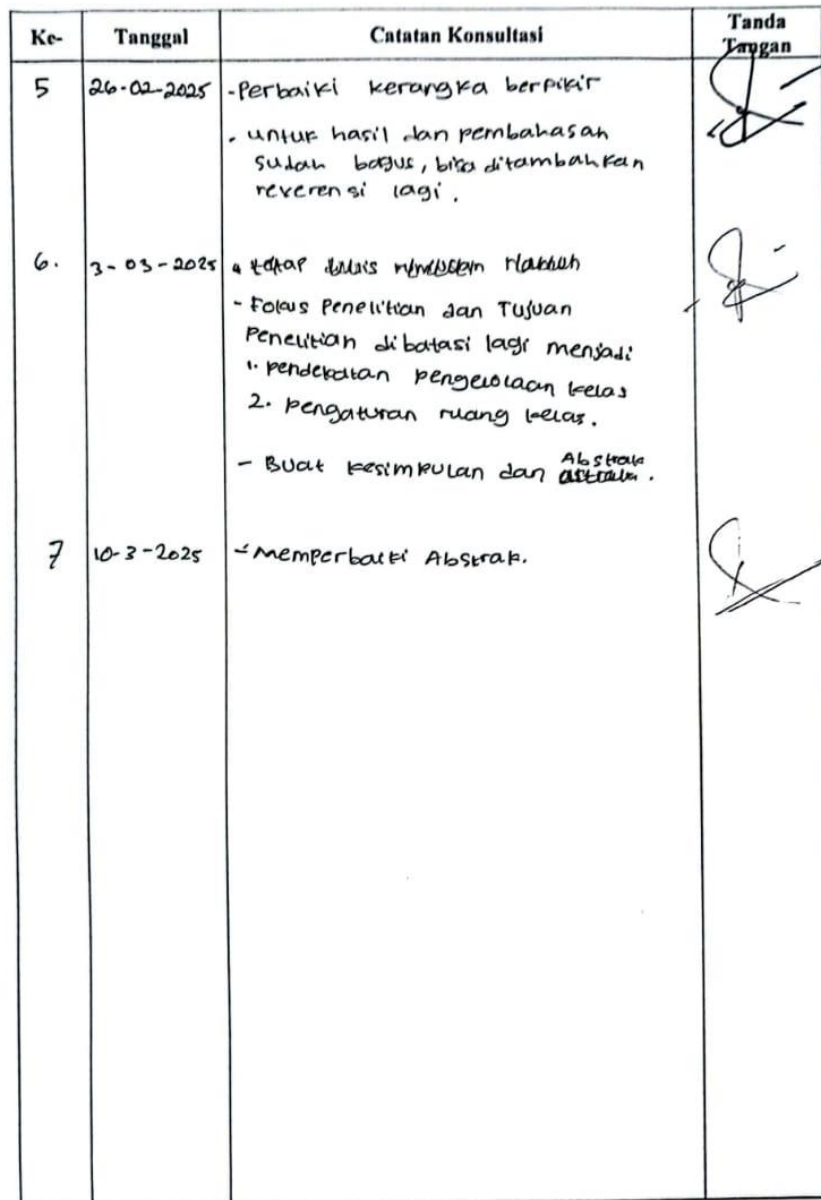 Ke- Tanggal Catatan Konsultasi Tanda Tangan
5 26-02-2025 - Perbaiki kerangka berpikir
- untuk hasil dan pembahasan
sudah bagus, bisa ditambahkan
reverensi lagi.
6. 3-03-2025 tetap
- Fokus Penelitian dan Tujuan
Penelitian dibatasi lagi menjadi
1. pendekatan pengelolaan kelas
2. pengaturan ruang kelas.
- Buat kesimpulan dan Abstrak.
7 10-3-2025 - Memperbaiki Abstrak.